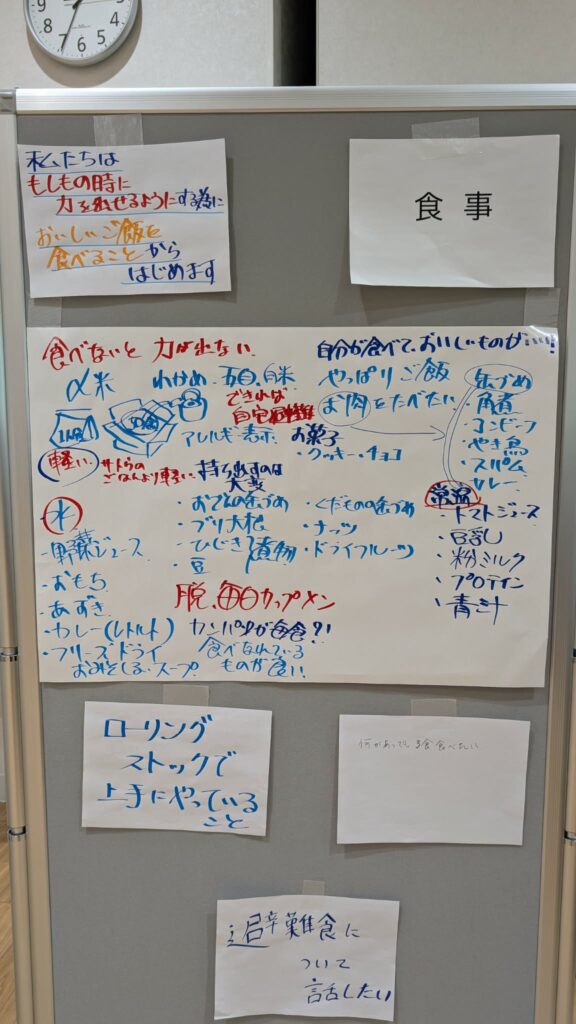 9
8
7
6
5
4
3
私たちは
もしもの時に
力を出せるようにする為に
おいしいご飯を
食べることから
はじめます
食事
食べないと 力が出ない
自分が食べて、おいしいものがいい!
α米 わかめ、五目、白米
できれば
自宅
アレルギー表示
軽い
サトウの
ごはんより軽い
持ち出すのは
大変
お菓子
・クッキー・チョコ
やっぱりご飯
お肉をたべたい
缶づめ
・角煮
・コンビーフ
・やき鳥
・スパム
・カレー
常温
・トマトジュース
・豆乳
・粉ミルク
・プロテイン
・青汁
水
・野菜ジュース
・おもち
・あずき
・カレー(レトルト)
・フリーズドライ
おみそしる・スープ
・おでんの缶づめ
・ブリ大根
・ひじき
・豆
漬物
・くだものの缶づめ
・ナッツ
・ドライフルーツ
脱、毎日カップメン
カンパンが毎食?!
食べなれている
ものが良い
ローリング
ストックで
上手にやっている
こと
何があっても 食べたい
避難食に
ついて
話したい